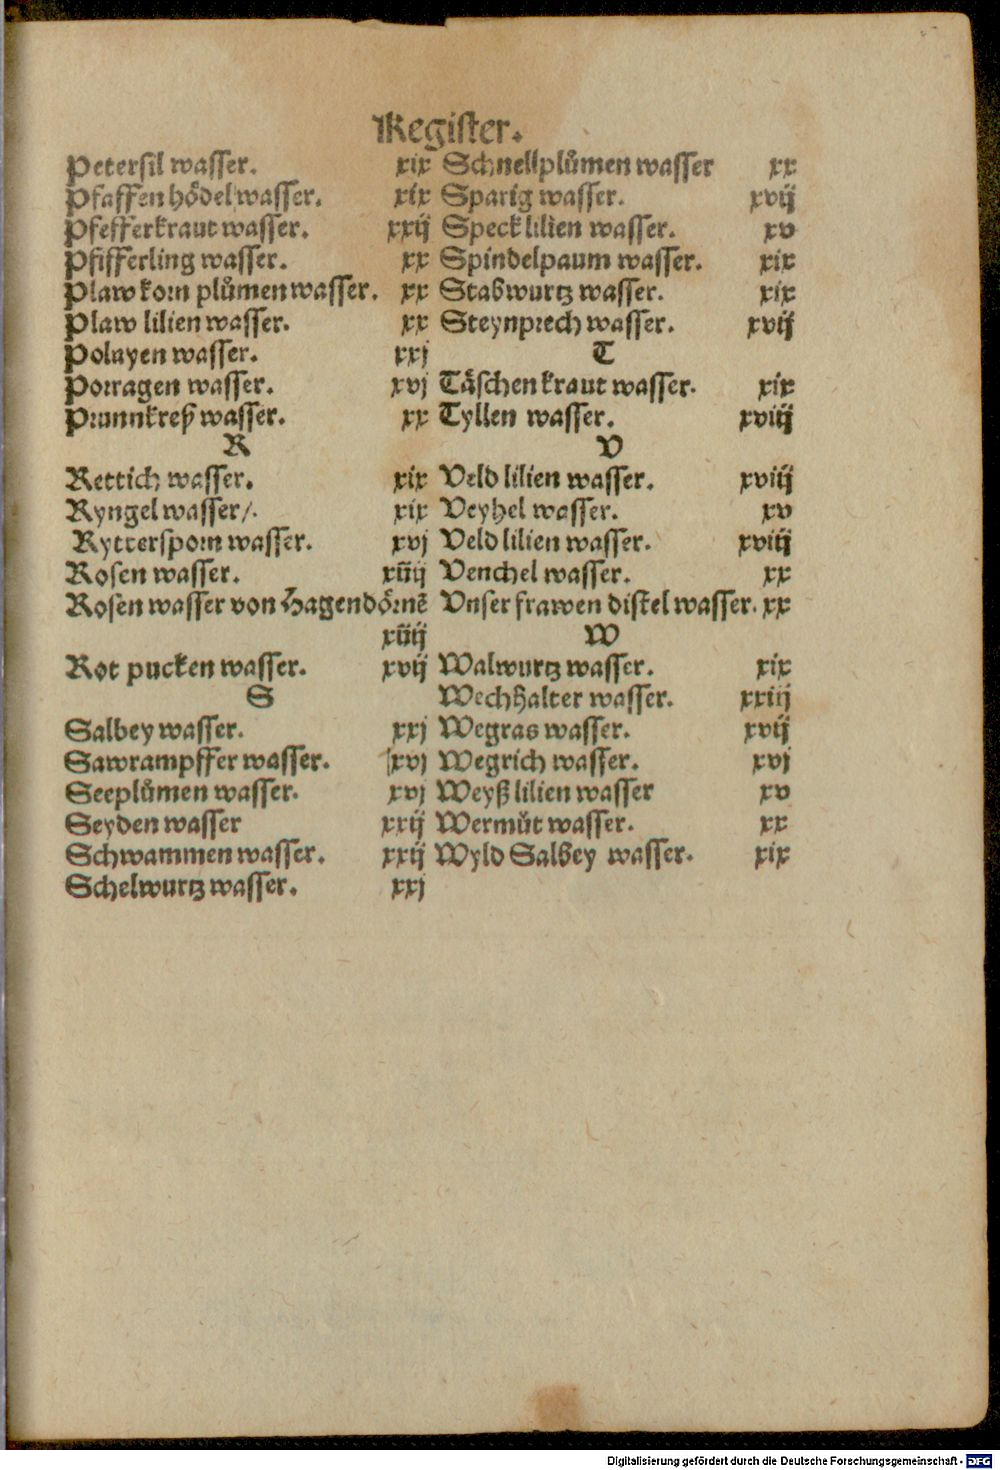 Register.
Petersil wasser. xix
Pfaffen hödel wasser. xix
Pfefferkraut wasser. xxij
Pfifferling wasser. xx
Plaw korn plůmen wasser. xx
Plaw lilien wasser. xx
Polayen wasser. xxj
Porragen wasser. xvj
Prunnkreß wasser. xx
R
Rettich wasser. xix
Ryngel wasser/. xix
Ryttersporn wasser. xvj
Rosen wasser. xiiij
Rosen wasser von Hagendörnē
xiiij
Rot pucken wasser. xvij
S
Salbey wasser. xxj
Sawrampffer wasser. xvj
Seeplůmen wasser. xvj
Seyden wasser xxij
Schwammen wasser. xxij
Schelwurtz wasser. xxj
Schnellplůmen wasser xx
Sparig wasser. xvij
Speck lilien wasser. xv
Spindelpaum wasser. xix
Stabwurtz wasser. xix
Steynprech wasser. xvij
T
Täschen kraut wasser. xix
Tyllen wasser. xviij
V
Veld lilien wasser. xviij
Veyhel wasser. xv
Veld lilien wasser. xviij
Venchel wasser. xx
Vnser frawen distel wasser. xx
W
Walwurtz wasser. xix
Wechhalter wasser. xxiij
Wegras wasser. xvij
Wegrich wasser. xvj
Weyß lilien wasser xv
Wermůt wasser. xx
Wyld Salbey wasser. xix
Digitalisierung gefördert durch die Deutsche Forschungsgemeinschaft - DFG